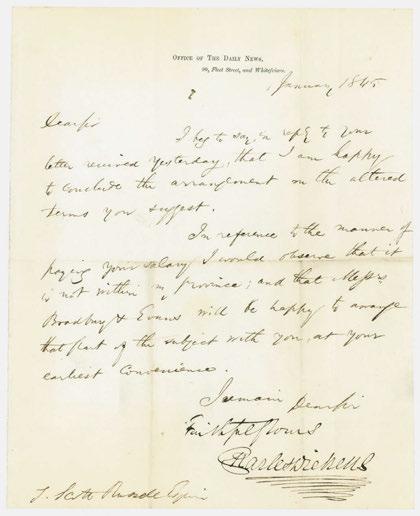 OFFICE OF THE DAILY NEWS,
90, Fleet Street, and Whitefriars.
January 1845
Dear Sir
I beg to say, in reply to your
letter received yesterday, that I am happy
to conclude the arrangement on the altered
terms you suggest.
In reference to the manner of
paying your salary I would observe that it
is not within my province; and that Messrs
Bradbury & Evans will be happy to arrange
that part of the subject with you, at your
earliest convenience.
I remain Dear Sir
Faithfully Yours
Charles Dickens
J. Scott